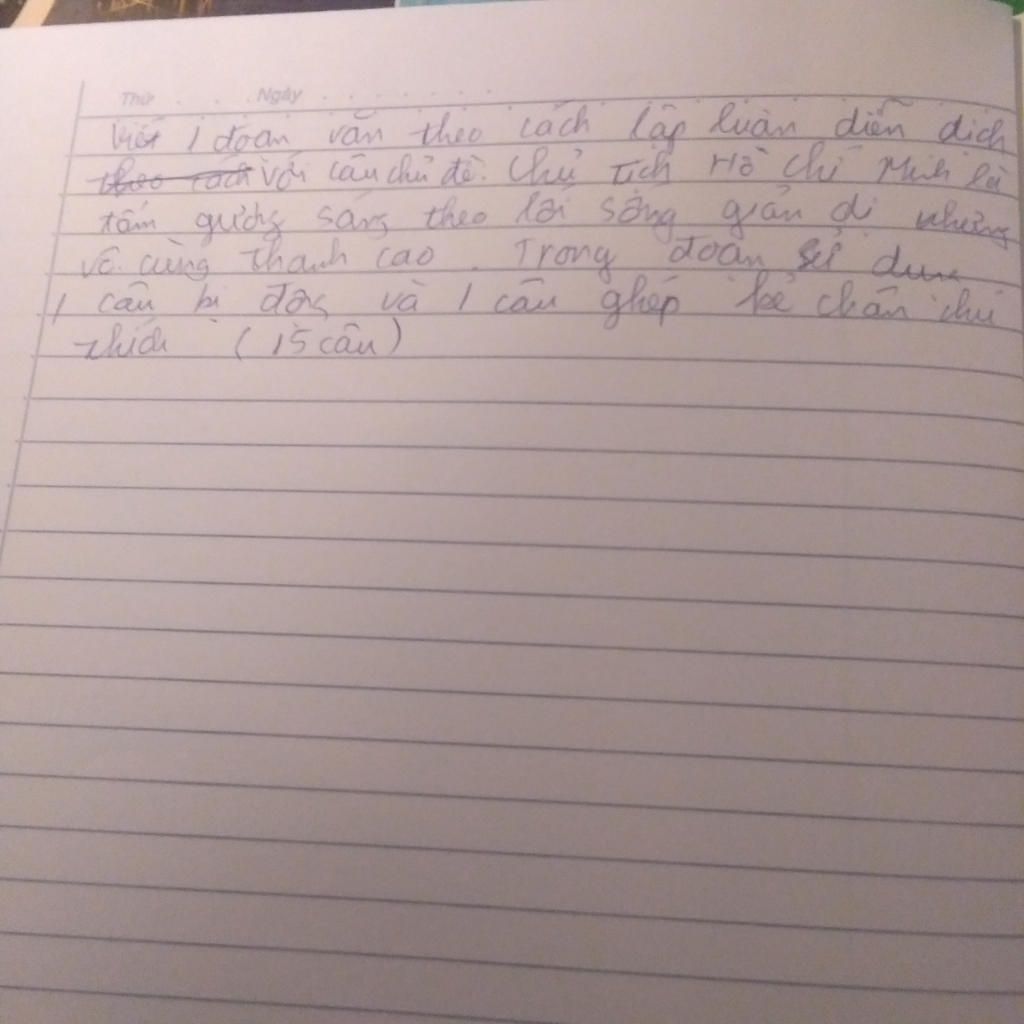 Thứ . . . Ngày . . . . . . .
Viết 1 đoạn văn theo cách lập luận diễn dịch
theo cách với câu chủ đề. Chủ Tịch Hồ Chí Minh là
tấm gương sáng theo lối sống giản dị nhưng
vô cùng thanh cao. Trong đoạn sử dụng
1 câu bị động và 1 câu ghép kẻ chân chú
thích (15 câu)